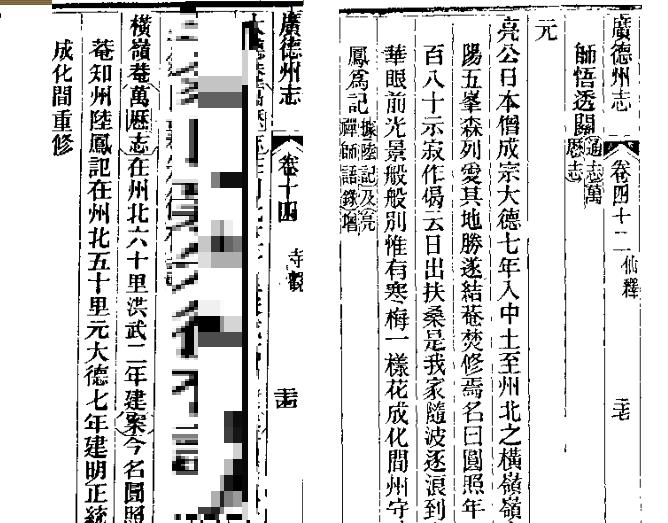 廣德州志 卷四十二 仙釋
師悟透關 通志萬
厯志
元
亮公日本僧成宗大德七年入中土至州北之橫嶺嶺
陽五峯森列愛其地勝遂結菴焚修焉名曰圓照年
百八十示寂作偈云日出扶桑是我家隨波逐浪到
華眼前光景般般別惟有寒梅一樣花成化間州守
鳳爲記 據陸記及亮
禪師語錄增
廣德州志 卷十四 寺觀
橫嶺菴萬厯志在州北六十里洪武二年建案今名圓照
菴知州陸鳳記在州北五十里元大德七年建明正統
成化間重修